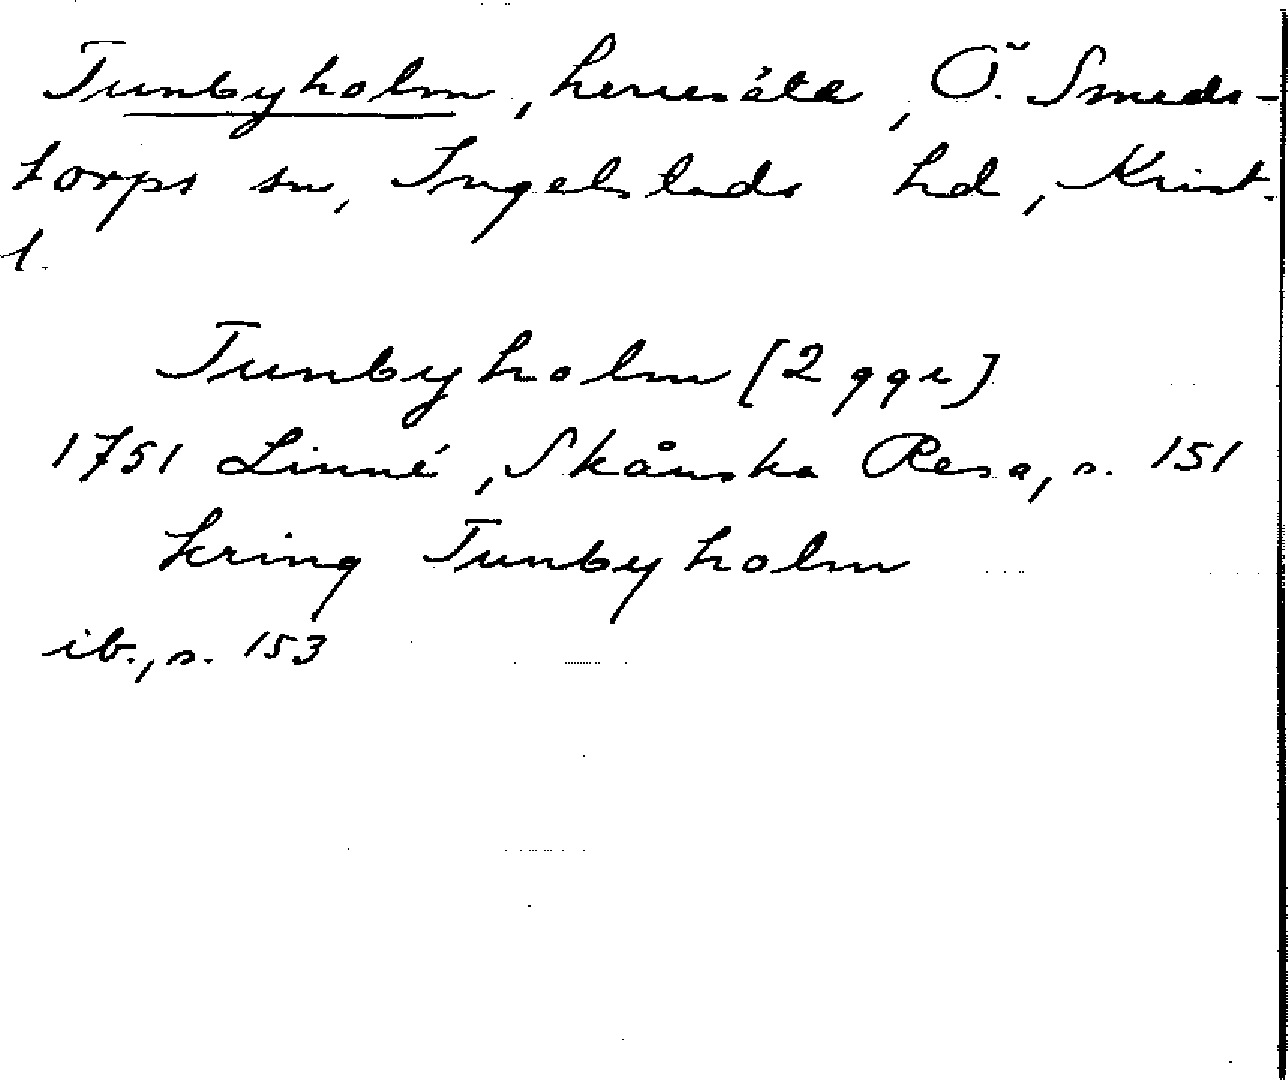 Tunbyholm, herresäte, Ö. Smeds-
torps sn, Ingelstads hd, Krist.
l.
Tunbyholm [2 ggr]
1751 Linné, Skånska Resa, s. 151
kring Tunbyholm
ib., s. 153